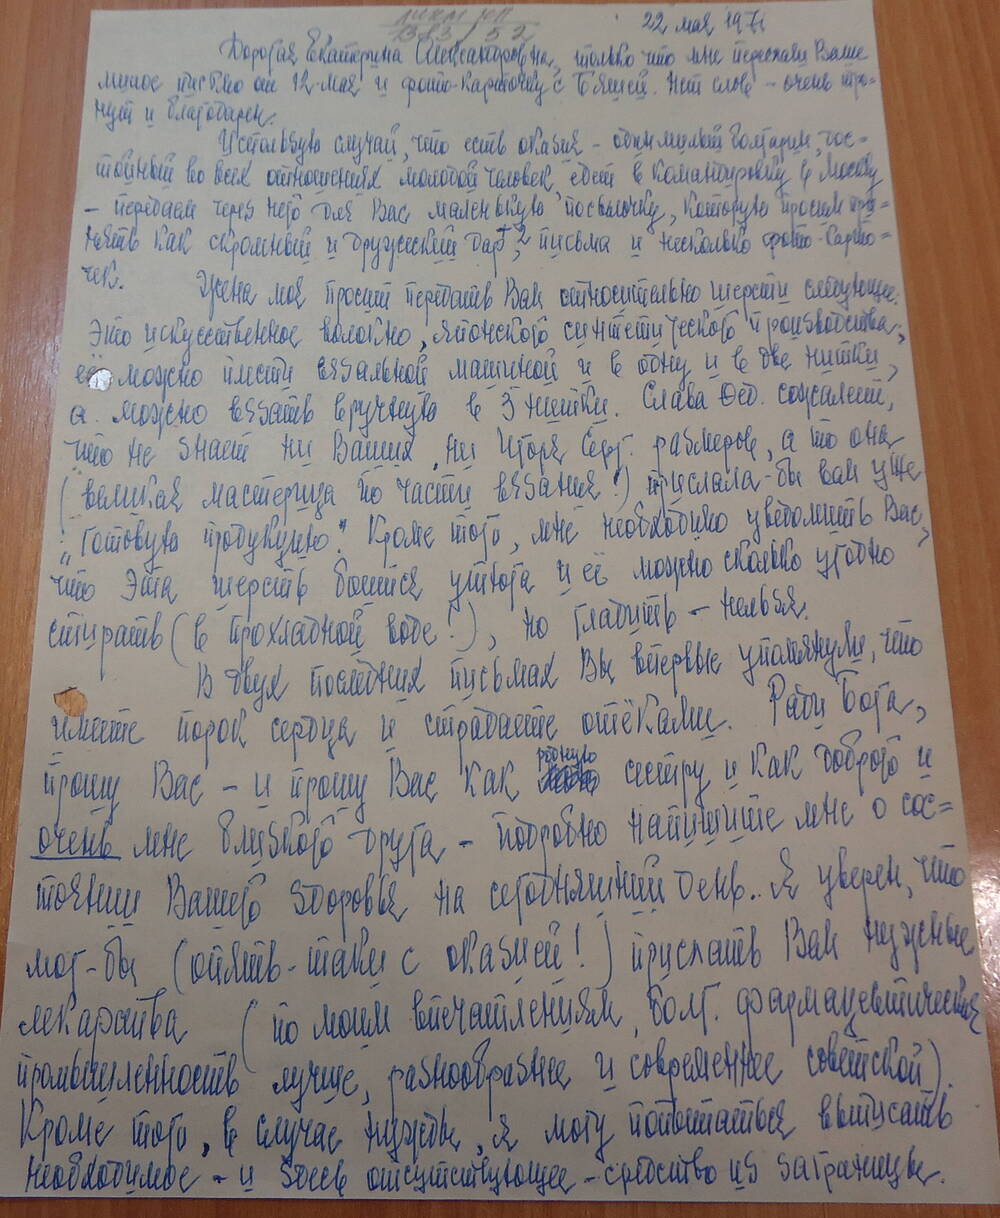 22 мая 1971
Дорогая Екатерина Александровна, только что мне переслали Ваше
милое письмо от 12-мая и фото-карточку с Бяшей. Нет слов – очень тро-
нут и благодарен.
Использую случай, что есть оказия – один милый болгарин, дос-
тойный во всех отношениях молодой человек, едет в командировку в Москву
– передаем через него для Вас маленькую посылочку, которую просим при-
нять как скромный и дружеский дар, 2 письма и несколько фото-карто-
чек. Жена моя просит передать Вам относительно шерсти следующее:
Это искусственное волокно, японского синтетического производства,
её можно плести вязальной машиной и в одну и в две нитки,
а можно вязать вручную в 3 нитки. Слава Фед. сожалеет,
что не знает ни Ваших, ни Игоря Серг. размеров, а то она
(великая мастерица по части вязания!) прислала-бы вам уже
„готовую продукцию". Кроме того, мне необходимо уведомить Вас,
что эта шерсть боится утюга и её можно сколько угодно
стирать (в прохладной воде!), но гладить – нельзя.
В двух последних письмах Вы впервые упомянули, что
имеете порок сердца и страдаете отёками. Ради Бога,
прошу Вас – и прошу Вас как родную сестру и как доброго и
очень мне близкого друга – подробно напишите мне о сос-
тоянии Вашего здоровья на сегодняшний день.. Я уверен, что
мог-бы (опять-таки с оказией!) прислать Вам нужные
лекарства (по моим впечатлениям, болг. фармацевтическая
промышленность лучше, разнообразнее и современнее советской).
Кроме того, в случае нужды, я могу попытаться выписать
необходимое – и здесь отсутствующее – средство из заграницы.